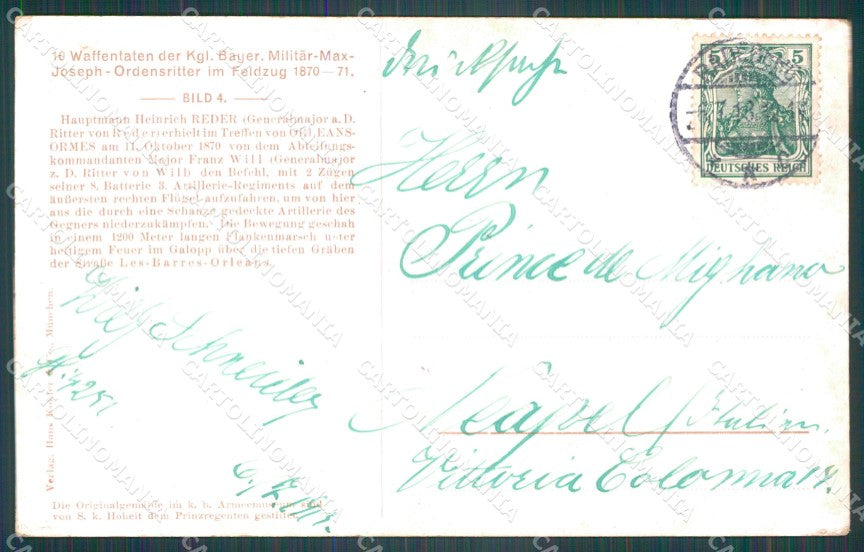 10 Waffentaten der Kgl. Bayer. Militär-Max-
Joseph-Ordensritter im Feldzug 1870-71.
BILD 4.
Hauptmann Heinrich REDER (Generalmajor a. D.
Ritter von Reder) erhielt im Treffen von ORLEANS-
ORMES am 11. Oktober 1870 von dem Abteilungs-
kommandanten Major Franz Will (Generalmajor
z. D. Ritter von Will) den Befehl, mit 2 Zügen
seiner 8. Batterie 3. Artillerie-Regiments auf dem
äußersten rechten Flügel aufzufahren, um von hier
aus die durch eine Schanze gedeckte Artillerie des
Gegners niederzukämpfen. Die Bewegung geschah
in einem 1200 Meter langen Flankenmarsch unter
heftigem Feuer im Galopp über die tiefen Gräben
der Straße Les-Barres-Orleans.
Verlag: Hans München.
Die Originalgemälde im k. b. Armeemuseum sind
von S. k. Hoheit dem Prinzregenten gestiftet.
Drucksache
5 5
DEUTSCHES REICH
Herrn
Prince de Mignano
Neapel (Italien.
Vittoria Colonna 14.
Schneider
CARTOLINOMANIA